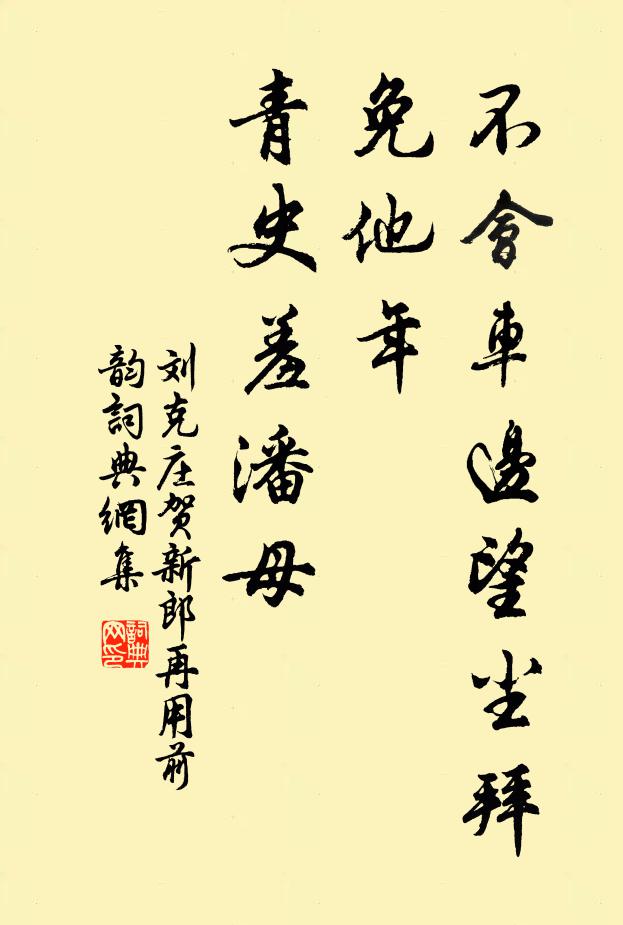 不會車邊望尘拜
免他年
青史羞潘母
刘克庄贺新郎再用前
韵詞典網集
詞典网印